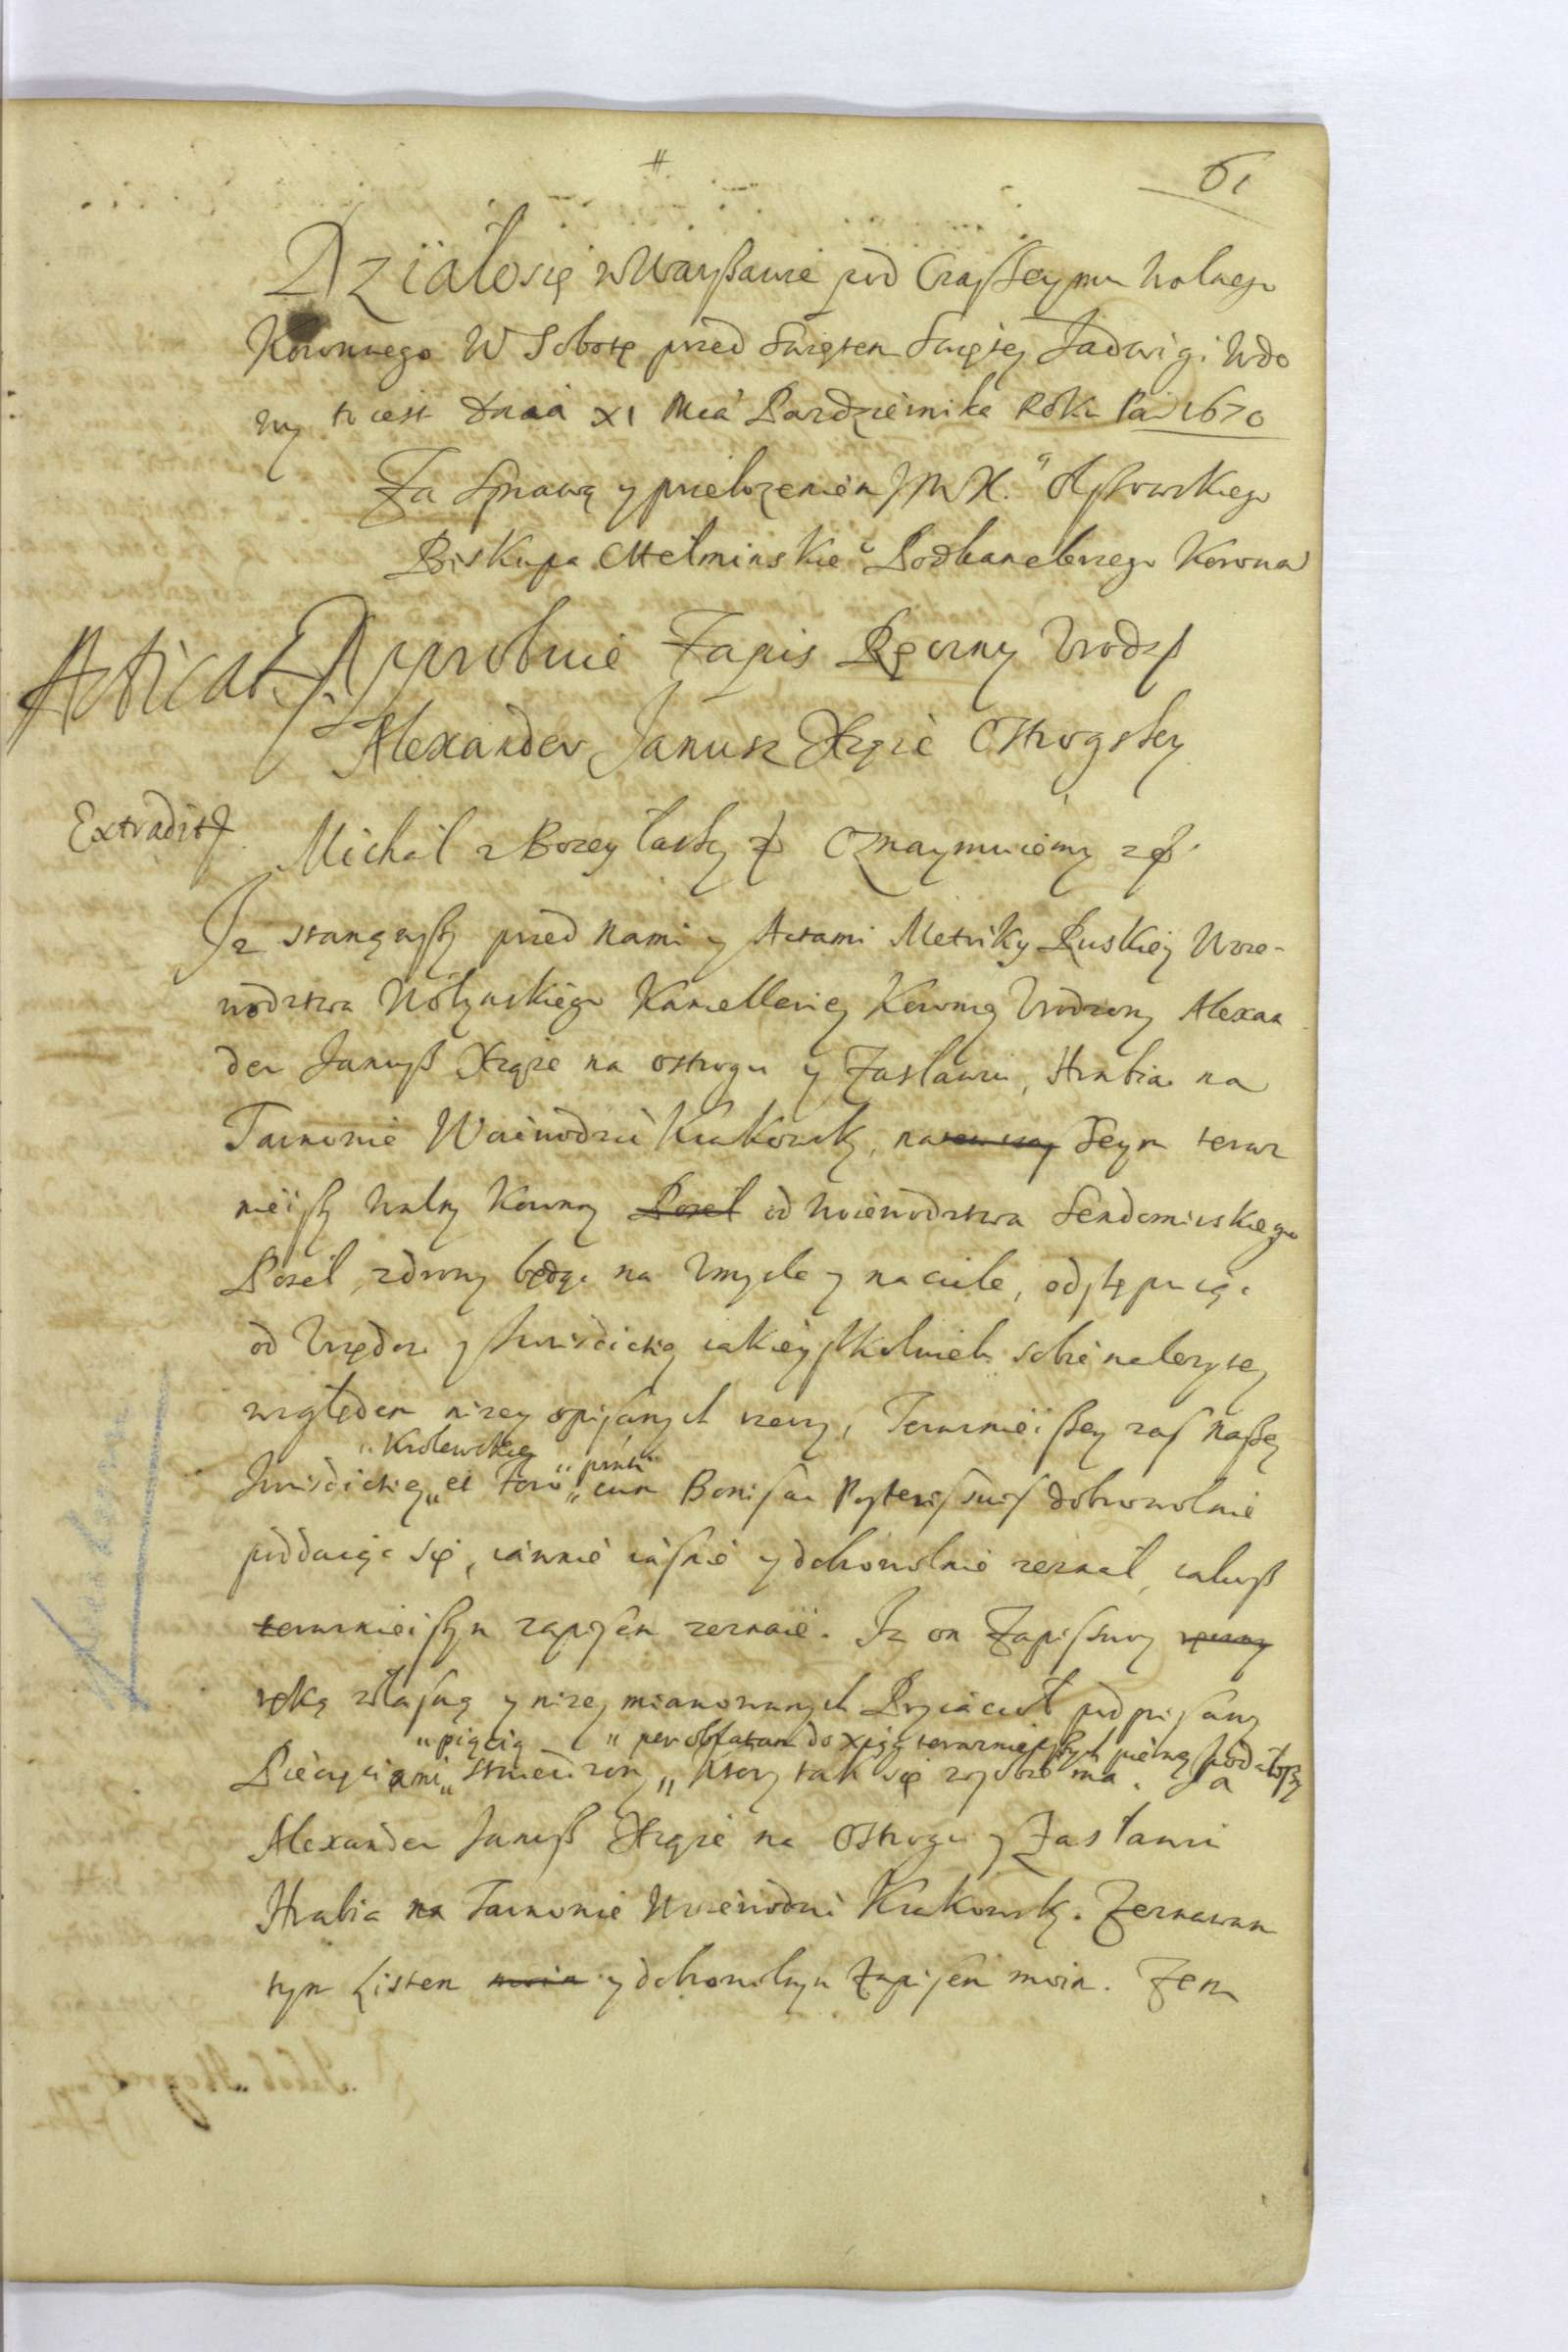 #
61
Działo się w Warszawie pod Czas Seymu Walnego
Koronnego W Sobotę przed Swiętem Swiętey Jadwigi Wdo
wy to iest Dnia XI Mca Pazdziernika Roku Pań 1670
Za Sprawą y przełozeniem JMX. Olszowskiego
Biskupa Chełminskie° Podkanclerzego Koron
Acticat. Approbuie Zapis Ręczny Urodz
Alexander Janusz Xiąże Ostrogsky
Extradit
Michał z Bozey łasky Oznaymuiemy
Iz stanąwszy przed Nami y Actami Metriky Ruskiey Woie-
wodztwa Wołynskiego Kancellariey Koronney Urodzony Alexan
der Janusz Xiąże na Ostrogu y Zasławiu, Hrabia na
Tarnowie Woiewodzic Krakowsky, na ten czas Seym teraz
nieiszy Walny Koronny Poseł od Woiewodztwa Sendomirskiego
Poseł, zdrowy będąc na Umysle y na ciele, odstępuiąc
od Urzędu y Jurisdictiey iakieyszkolwiek sobie nalezytey
względem nizey opisanych rzeczy, Terazniejszey zas Naszey
"Krolewskiey "praw
Jurisdictiey "et foro" cum Bonis ac Posteris suis dobrowolnie
poddaiąc się, iawnie iasnie y dobrowolnie zeznał, iakosz
terazniejszym zapisem zeznaie. Iz on Zapis swoy ręczny
ręką własną y nizey mianowanych Przyiacioł podpisany
"pięcią "per oblatam do Xiąg terazniejszych pierwey podawszy
Pieczęciami "stwierdzony "ktory tak się w sobie ma. Ja
Alexander Janusz Xiąże na Ostrogu y Zasławiu
Hrabia na Tarnowie Woiewodzic Krakowsky. Zeznawam
tym Listem moim y dobrowolnym Zapisem moim. Zem